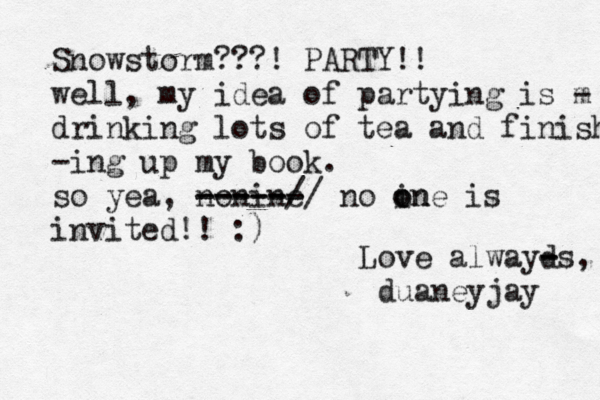 Snowstorm???! PARTY!!
well, my idea of partying is -
drinking lots of tea and finish
-ing up my book.
so yea, no one is
invited!! :)
Love always,
duaneyjay